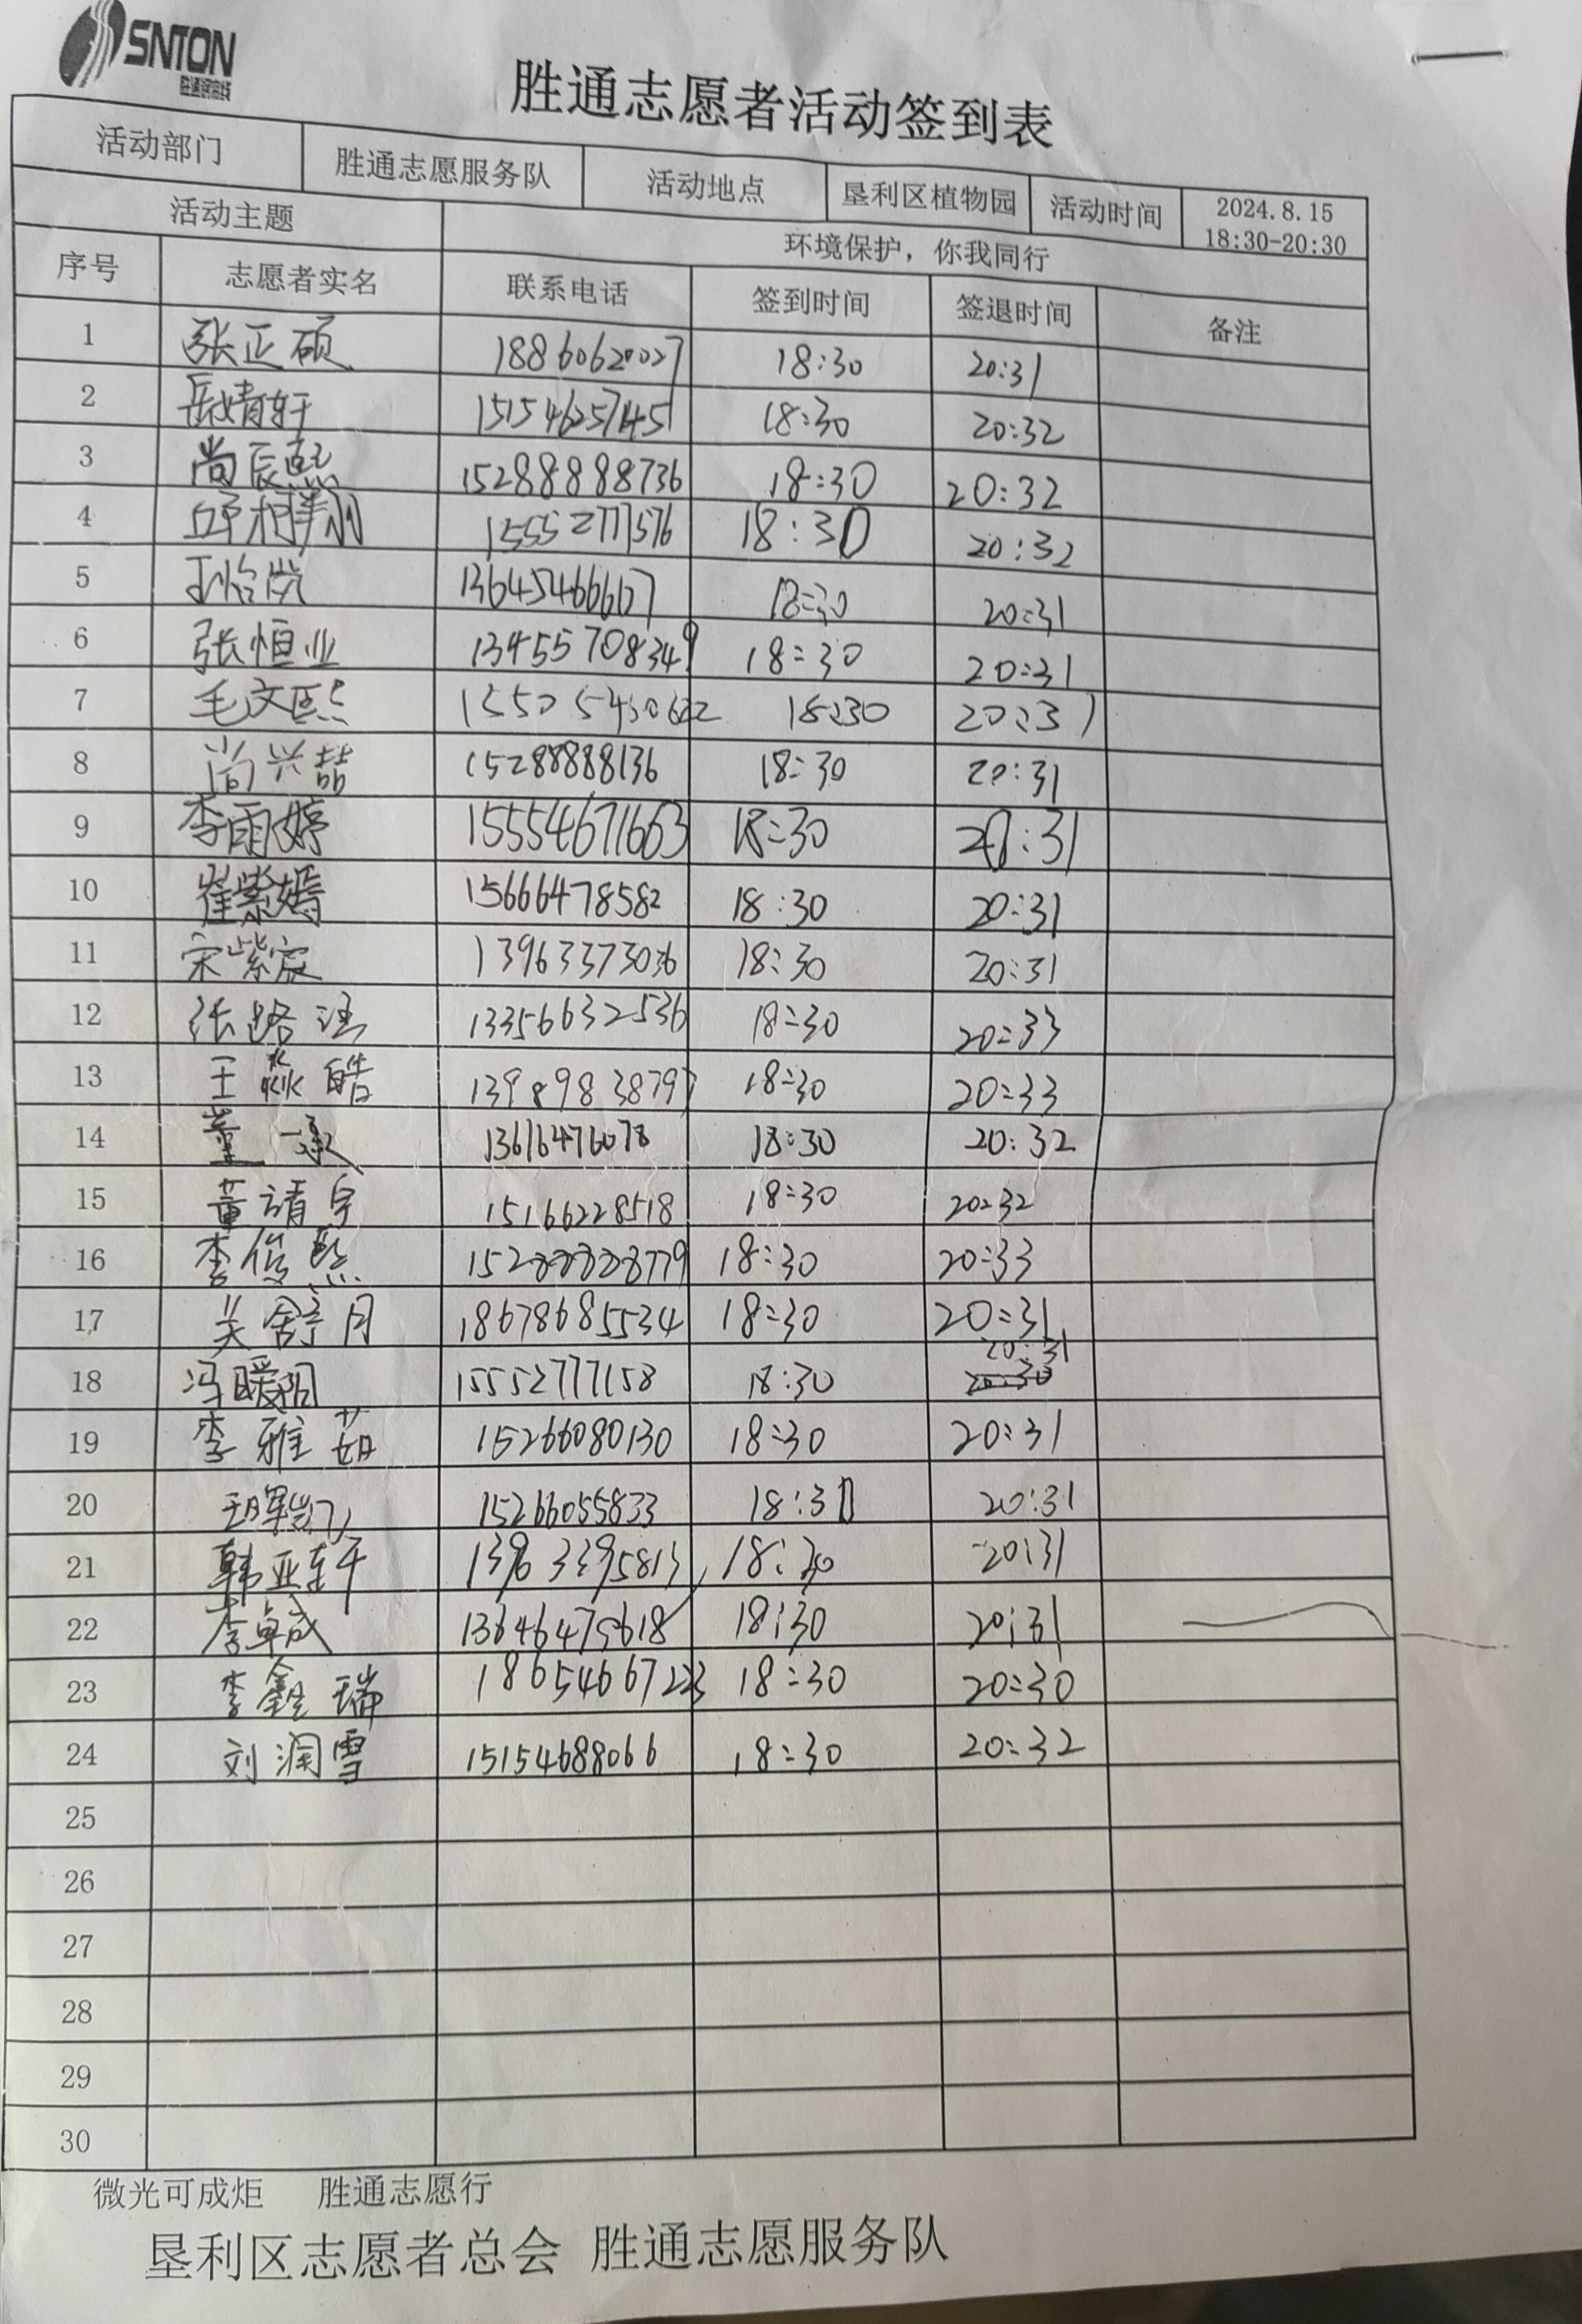 SNTON
胜通志愿者活动签到表
活动部门 胜通志愿服务队 活动地点 垦利区植物园 活动时间 2024.8.15
18:30-20:30
活动主题 环境保护，你我同行
序号 志愿者实名 联系电话 签到时间 签退时间 备注
1 张正硕 18860620027 18:30 20:31
2 岳婧轩 15154625745 18:30 20:32
3 尚辰熙 15288888736 18:30 20:32
4 15552777576 18:30 20:32
5 18:30 20:31
6 张恒业 13455708349 18:30 20:31
7 毛文熙 18:30 20:31
8 尚兴喆 15288888136 18:30 20:31
9 李雨婷 15554671663 18:30 20:31
10 崔紫嫣 15666478582 18:30 20:31
11 宋紫宸 13963373036 18:30 20:31
12 张路 13356632536 18:30 20:33
13 王淼皓 13989838797 18:30 20:33
14 董一承 13616476078 18:30 20:32
15 董靖宇 15166228518 18:30 20:32
16 李俊熙 15288888779 18:30 20:33
17 吴舒月 18678685534 18:30 20:31
18 冯暖阳 15552777158 18:30 20:31
19 李雅茹 15266080130 18:30 20:31
20 15266055833 18:30 20:31
21 韩亚轩 13963395813 18:30 20:31
22 李卓成 13646475618 18:30 20:31
23 李鑫瑞 18654667223 18:30 20:30
24 刘润雪 15154688066 18:30 20:32
25
26
27
28
29
30
微光可成炬 胜通志愿行
垦利区志愿者总会 胜通志愿服务队